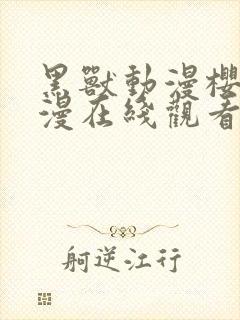 黑獸動漫櫻
漫在綫觀看
躬逆江行